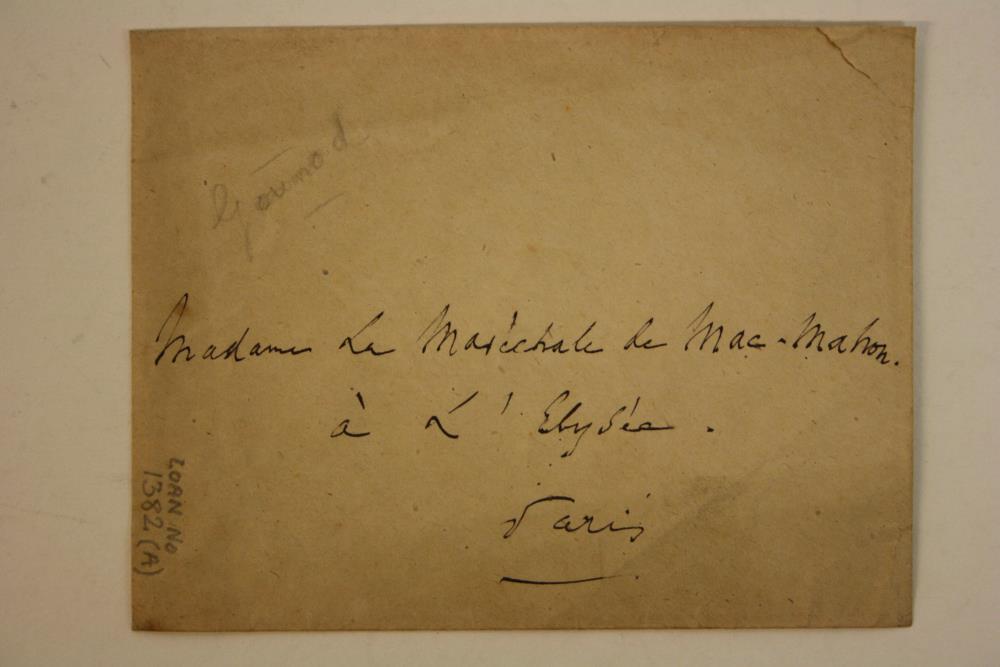 Gounod
Madame La Maréchale de Mac-Mahon.
à L'Elysée.
Paris
LOAN NO
1382 (A)